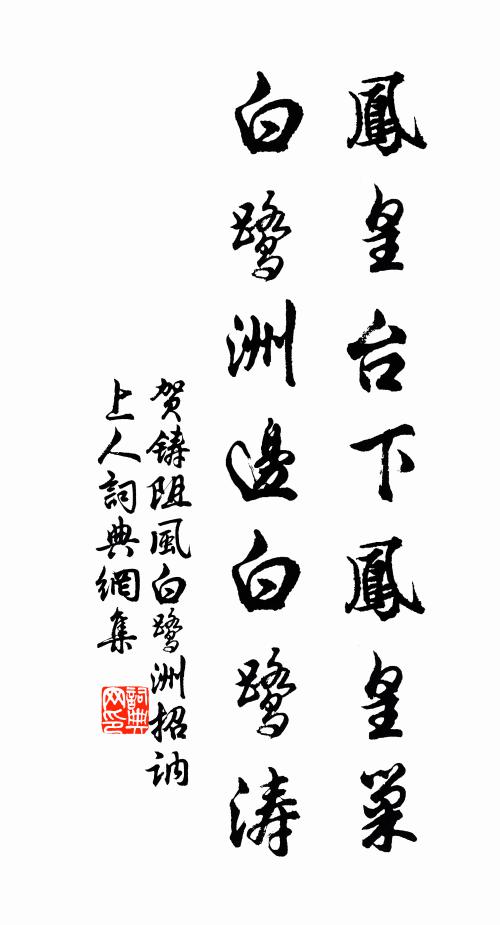 鳳皇台下鳳皇巢
白鹭洲邊白鹭濤
贺鑄阻風白鹭洲招訥
上人詞典網集
詞典网印